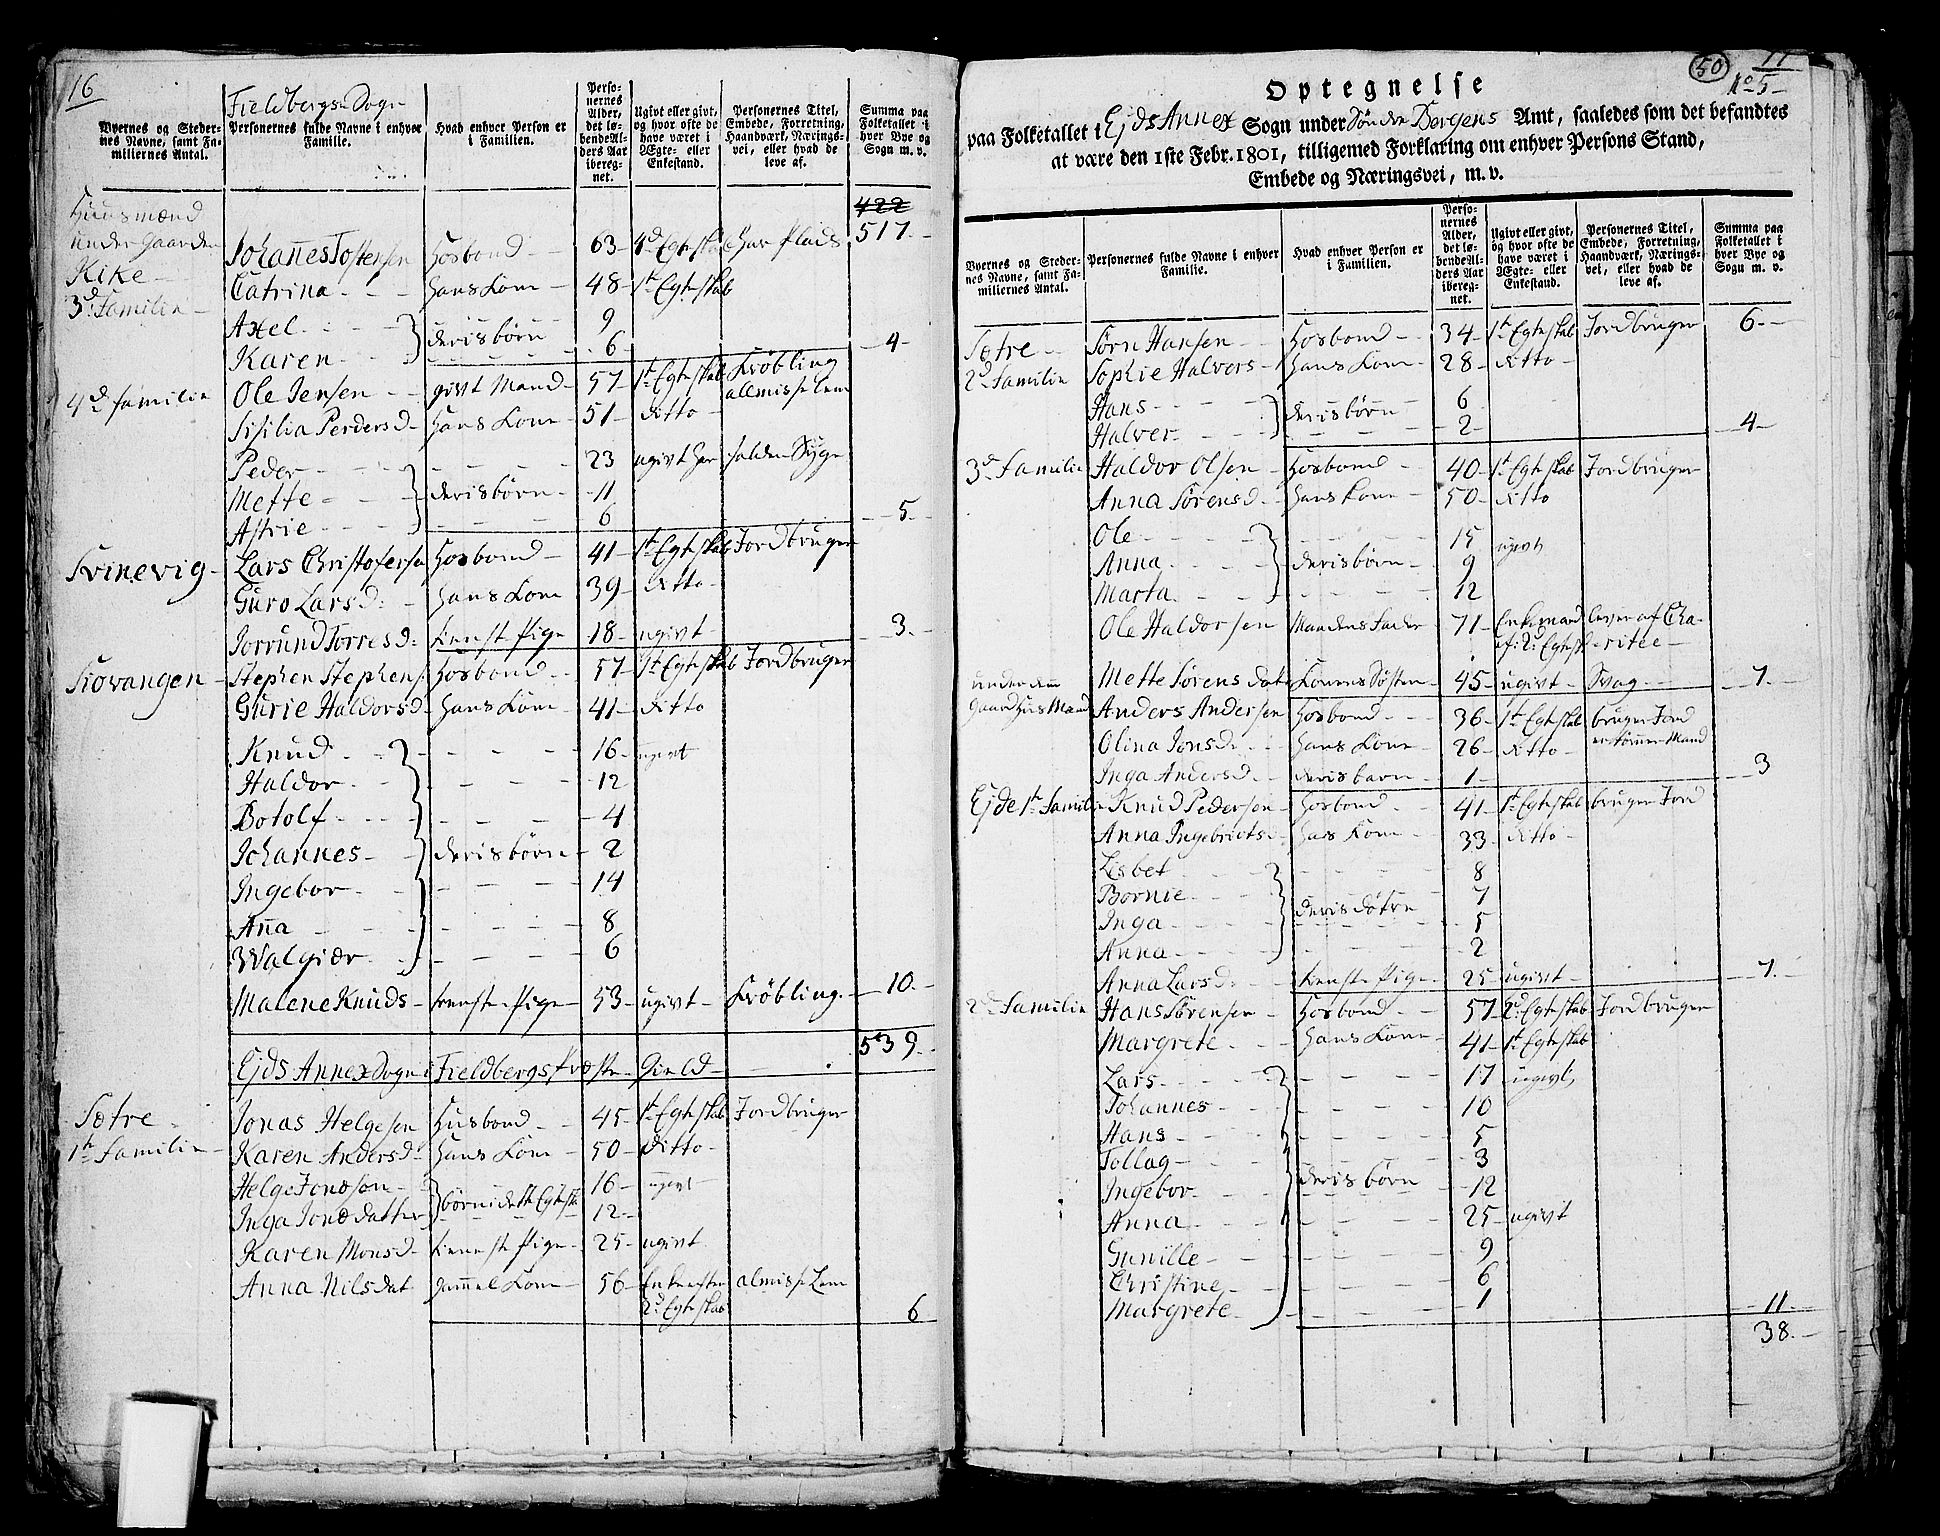 16
Fieldbergs Sogn
Byernes og Steder-
nes Navne, samt Fa-
miliernes Antal.
Personernes fulde Navne i enhver
Familie.
Hvad enhver Person er
i Familien.
Perso-
nernes
Alder,
det lø-
bende Al-
ders Aar
ibereg-
net.
Ugivt eller givt,
og hvor ofte de
have været i
Ægte- eller
Enkestand.
Personernes Titel,
Embede, Forretning,
Haandværk, Nærings-
vei, eller hvad de
leve af.
Summa paa
Folketallet i
hver Bye og
Sogn m. v.
422
Huusmænd
under Gaarden
Kike
3d Familie
Johannes Tostensen Hosbond 63 4d Egteskab har Plads 517
Catrina Hans Kone 48 1t Egteskab
Axel 9
deris børn
Karen 6 4
4de familie Ole Jensen givt Mand 57 1t Egteskab Krøbling
allmisselem
Sisilia Perdersd Hans Kone 51 ditto
Peder 23 ugivt har falden Syge
Mette deris børn 11
Astrie 6 5
Svinevig Lars Christofersen Hosbond 41 1t Egteskab Jordbruger
Guro Larsd: Hans Kone 39 ditto
Jorrund Torresd: tienste Pige 18 ugivt 3
Skovangen Stephen Stephens: Hosbond 57 1t Egteskab Jordbruger
Gurie Haldorsd Hans Kone 41 ditto
Knud 16 ugivt
Haldor 12
Botolf 4
Johannes deris børn 2
Ingebor 14
Anna 8
Walgiær 6
Malene Knuds tienste Pige 53 ugivt Krøbling 10
539
Ejds Annex Sogn i Fieldbergs Præste Gield
Sætre
1te familie
Jonas Helgesen Husbond 45 1t Egteskab Jordbruger
Karen Andersd Hans Kone 50 ditto
Helge Jonæsøn 16 ugivt
børn i dette Egteskab
Inga Jonæ datter 12
Karen Monsd tienste Pige 25 ugivt
Anna Nilsdat gammel Kone 56 Enke efter almisse Lem
2d Egteskab 6
50 17
No 5
Optegnelse
paa Folketallet i Ejds Annex Sogn under Søndre Bergens Amt, saaledes som det befandtes
at være den 1ste Febr. 1801, tilligemed Forklaring om enhver Persons Stand,
Embede og Næringsvei, m. v.
Byernes og Steder-
nes Navne, samt Fa-
miliernes Antal.
Personernes fulde Navne i enhver
Familie.
Hvad enhver Person er
i Familien.
Perso-
nernes
Alder,
det lø-
bende Al-
ders Aar
ibereg-
net.
Ugivt eller givt,
og hvor ofte de
have været i
Ægte- eller
Enkestand.
Personernes Titel,
Embede, Forretning,
Haandværk, Nærings-
vei, eller hvad de
leve af.
Summa paa
Folketallet i
hver Bye og
Sogn m. v.
6
Sætre Sørn Hansen Hosbond 34 1t Egteskab Jordbruger
2d Familie Sophie Halvors Hans Kone 28 ditto
Hans 6
deris børn
Halver 2 4
3d Familie Haldor Olsen Hosbond 40 1t Egteskab Jordbruger
Anna Sørensd Hans Kone 50 ditto
Ole 15 ugivt
Anna deris børn 9
Marta 12
Ole Haldorsen Mandens Fader 71 Enkemand lever af Cha-
af 2d Egtesk ritee
under den Mette Sørens dat Konens Søster 45 ugivt Svag 7
Gaard Hus Mand Anders Andersen Hosbond 36 1t Egteskab bruger Jord
er tømmer Mand
Olina Jonsd: Hans Kone 26 ditto
Inga Andersd deris barn 1 3
Ejde 1te Familie Knud Pedersen Hosbond 41 1t Egteskab bruger Jord
Anna Ingebriots Hans Kone 33 ditto
Lisbet 8
Bornie 7
deris døtre
Inga 5
Anna 2
Anna Larsd: tienste Pige 25 ugivt 7
2d familie Hans Sørensen Hosbond 57 2d Egteskab Jordbruger
Margrete Hans Kone 41 1t Egteskab
Lars 17 ugivt
Johannes 10
Hans 5
Tollag 3
Ingebor deris børn 12
Anna 25 ugivt
Gunille 9
Christine 6
Margrete 1 11
38